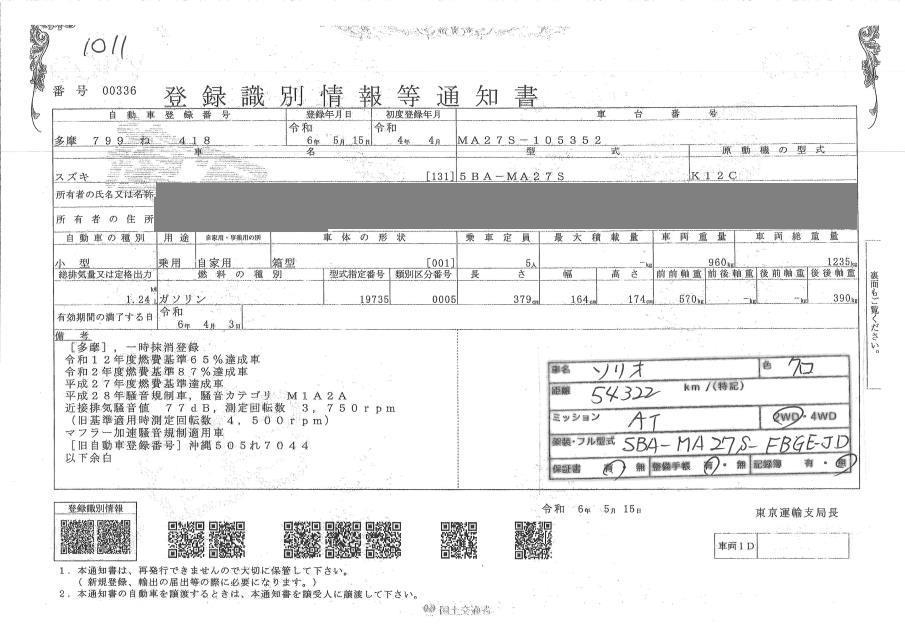 1011
番号 00336
登録識別情報等通知書
自動車登録番号 登録年月日 初度登録年月 車台番号
多摩 799 ね 418 令和 6年 5月 15日 令和 4年 4月 MA27S-105352
車名 型式 原動機の型式
スズキ [131] 5BA-MA27S K12C
所有者の氏名又は名称
所有者の住所
自動車の種別 用途 自家用・事業用の別 車体の形状 乗車定員 最大積載量 車両重量 車両総重量
小型 乗用 自家用 箱型 [001] 5人 -kg 960kg 1235kg
総排気量又は定格出力 燃料の種別 型式指定番号 類別区分番号 長さ 幅 高さ 前前軸重 前後軸重 後前軸重 後後軸重
1.24 kW L ガソリン 19735 0005 379cm 164cm 174cm 570kg -kg -kg 390kg
有効期間の満了する日 令和 6年 4月 3日
備考
[多摩], 一時抹消登録
令和12年度燃費基準65%達成車
令和2年度燃費基準87%達成車
平成27年度燃費基準達成車
平成28年騒音規制車, 騒音カテゴリ M1A2A
近接排気騒音値 77dB, 測定回転数 3,750rpm
(旧基準適用時測定回転数 4,500rpm)
マフラー加速騒音規制適用車
[旧自動車登録番号] 沖縄505れ7044
以下余白
車名 ソリオ 色 クロ
距離 54322 km/(特記)
ミッション AT 2WD・4WD
架装・フル型式 5BA-MA27S-FBGE-JD
保証書 有・無 整備手帳 有・無 記録簿 有・無
裏面もご覧ください。
登録識別情報
令和 6年 5月 15日 東京運輸支局長
車両ID
1. 本通知書は、再発行できませんので大切に保管して下さい。
(新規登録、輸出の届出等の際に必要になります。)
2. 本通知書の自動車を譲渡するときは、本通知書を譲受人に譲渡して下さい。
国土交通省